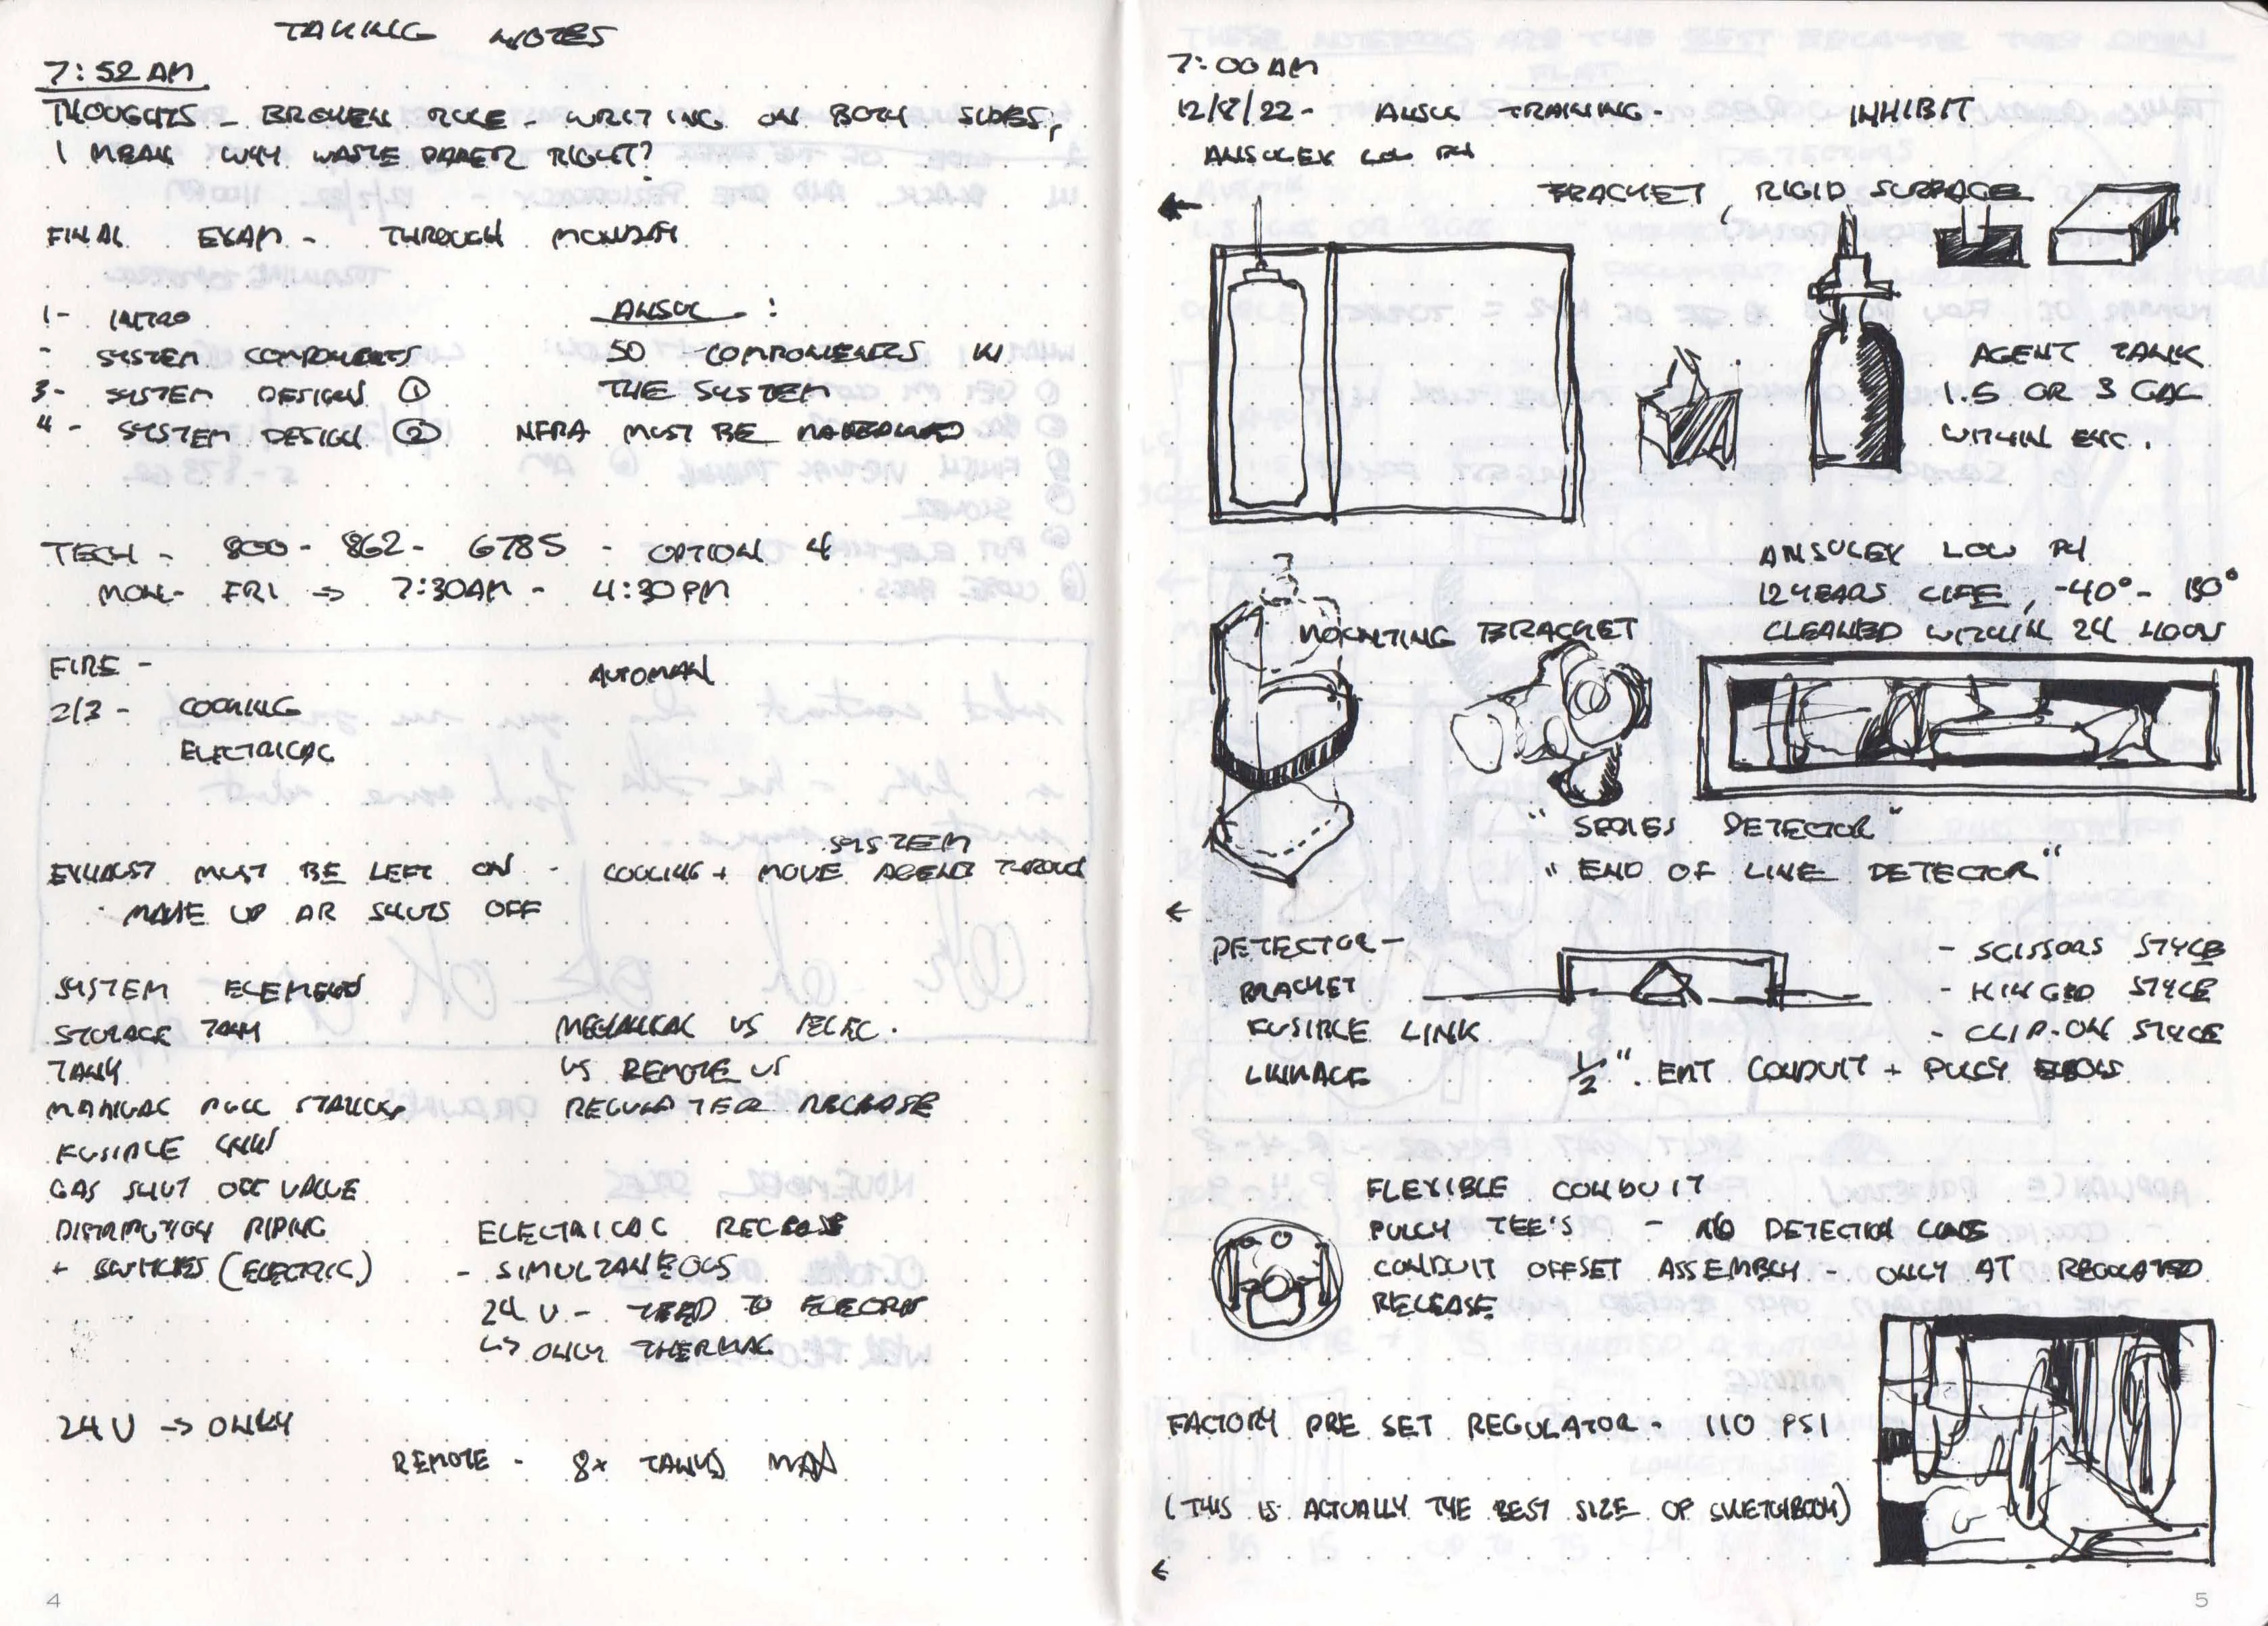 TAKING NOTES
7:52 AM
THOUGHTS - BROKEN RULE - WRITING ON BOTH SIDES,
I MEAN WHY WASTE PAPER RIGHT?
FINAL EXAM - THROUGH MONDAY
1- INTRO
- SYSTEM COMPONENTS
3- SYSTEM DESIGN ①
4- SYSTEM DESIGN ②
ANSUL :
50 COMPONENTS IN
THE SYSTEM
NFPA MUST BE
TECH - 800-862-6785 - OPTION 4
MON- FRI => 7:30AM - 4:30PM
FIRE -
2/3 - COOKING
ELECTRICAL
AUTOMAN
SYSTEM
EXHAUST MUST BE LEFT ON - COOLING + MOVE AGENT THROUGH
- MAKE UP AIR SHUTS OFF
SYSTEM ELEMENTS
STORAGE TANK
TANK
MANUAL PULL STATION
FUSIBLE LINK
GAS SHUT OFF VALVE
DISTRIBUTION PIPING
+ SWITCHES (ELECTRIC)
MECHANICAL VS ELEC.
VS REMOTE VS
REGULATED RELEASE
ELECTRICAL RELEASE
- SIMULTANEOUS
24 V - TO
↳ ONLY THERMAL
24 V -> ONLY
REMOTE - 8x TANKS MAX
4
7:00 AM
12/8/22 - ANSUL TRAINING - INHIBIT
ANSULEX LOW PH
BRACKET, RIGID SURFACE
AGENT TANK
1.5 OR 3 GAL
WITHIN ENC.
ANSULEX LOW PH
12 YEARS LIFE, -40° - 130°
CLEANED WITHIN 24 HOURS
MOUNTING BRACKET
"SERIES DETECTOR"
"END OF LINE DETECTOR"
DETECTOR -
BRACKET
FUSIBLE LINK
LINKAGE
- SCISSORS STYLE
- HINGED STYLE
- CLIP-ON STYLE
1/2" EMT CONDUIT + PULLY ELBOWS
FLEXIBLE CONDUIT
PULLY TEE'S - NO DETECTION LINE
CONDUIT OFFSET ASSEMBLY - ONLY AT REGULATED
RELEASE
FACTORY PRE SET REGULATOR - 110 PSI
(THIS IS ACTUALLY THE BEST SIZE OF SKETCHBOOK)
5